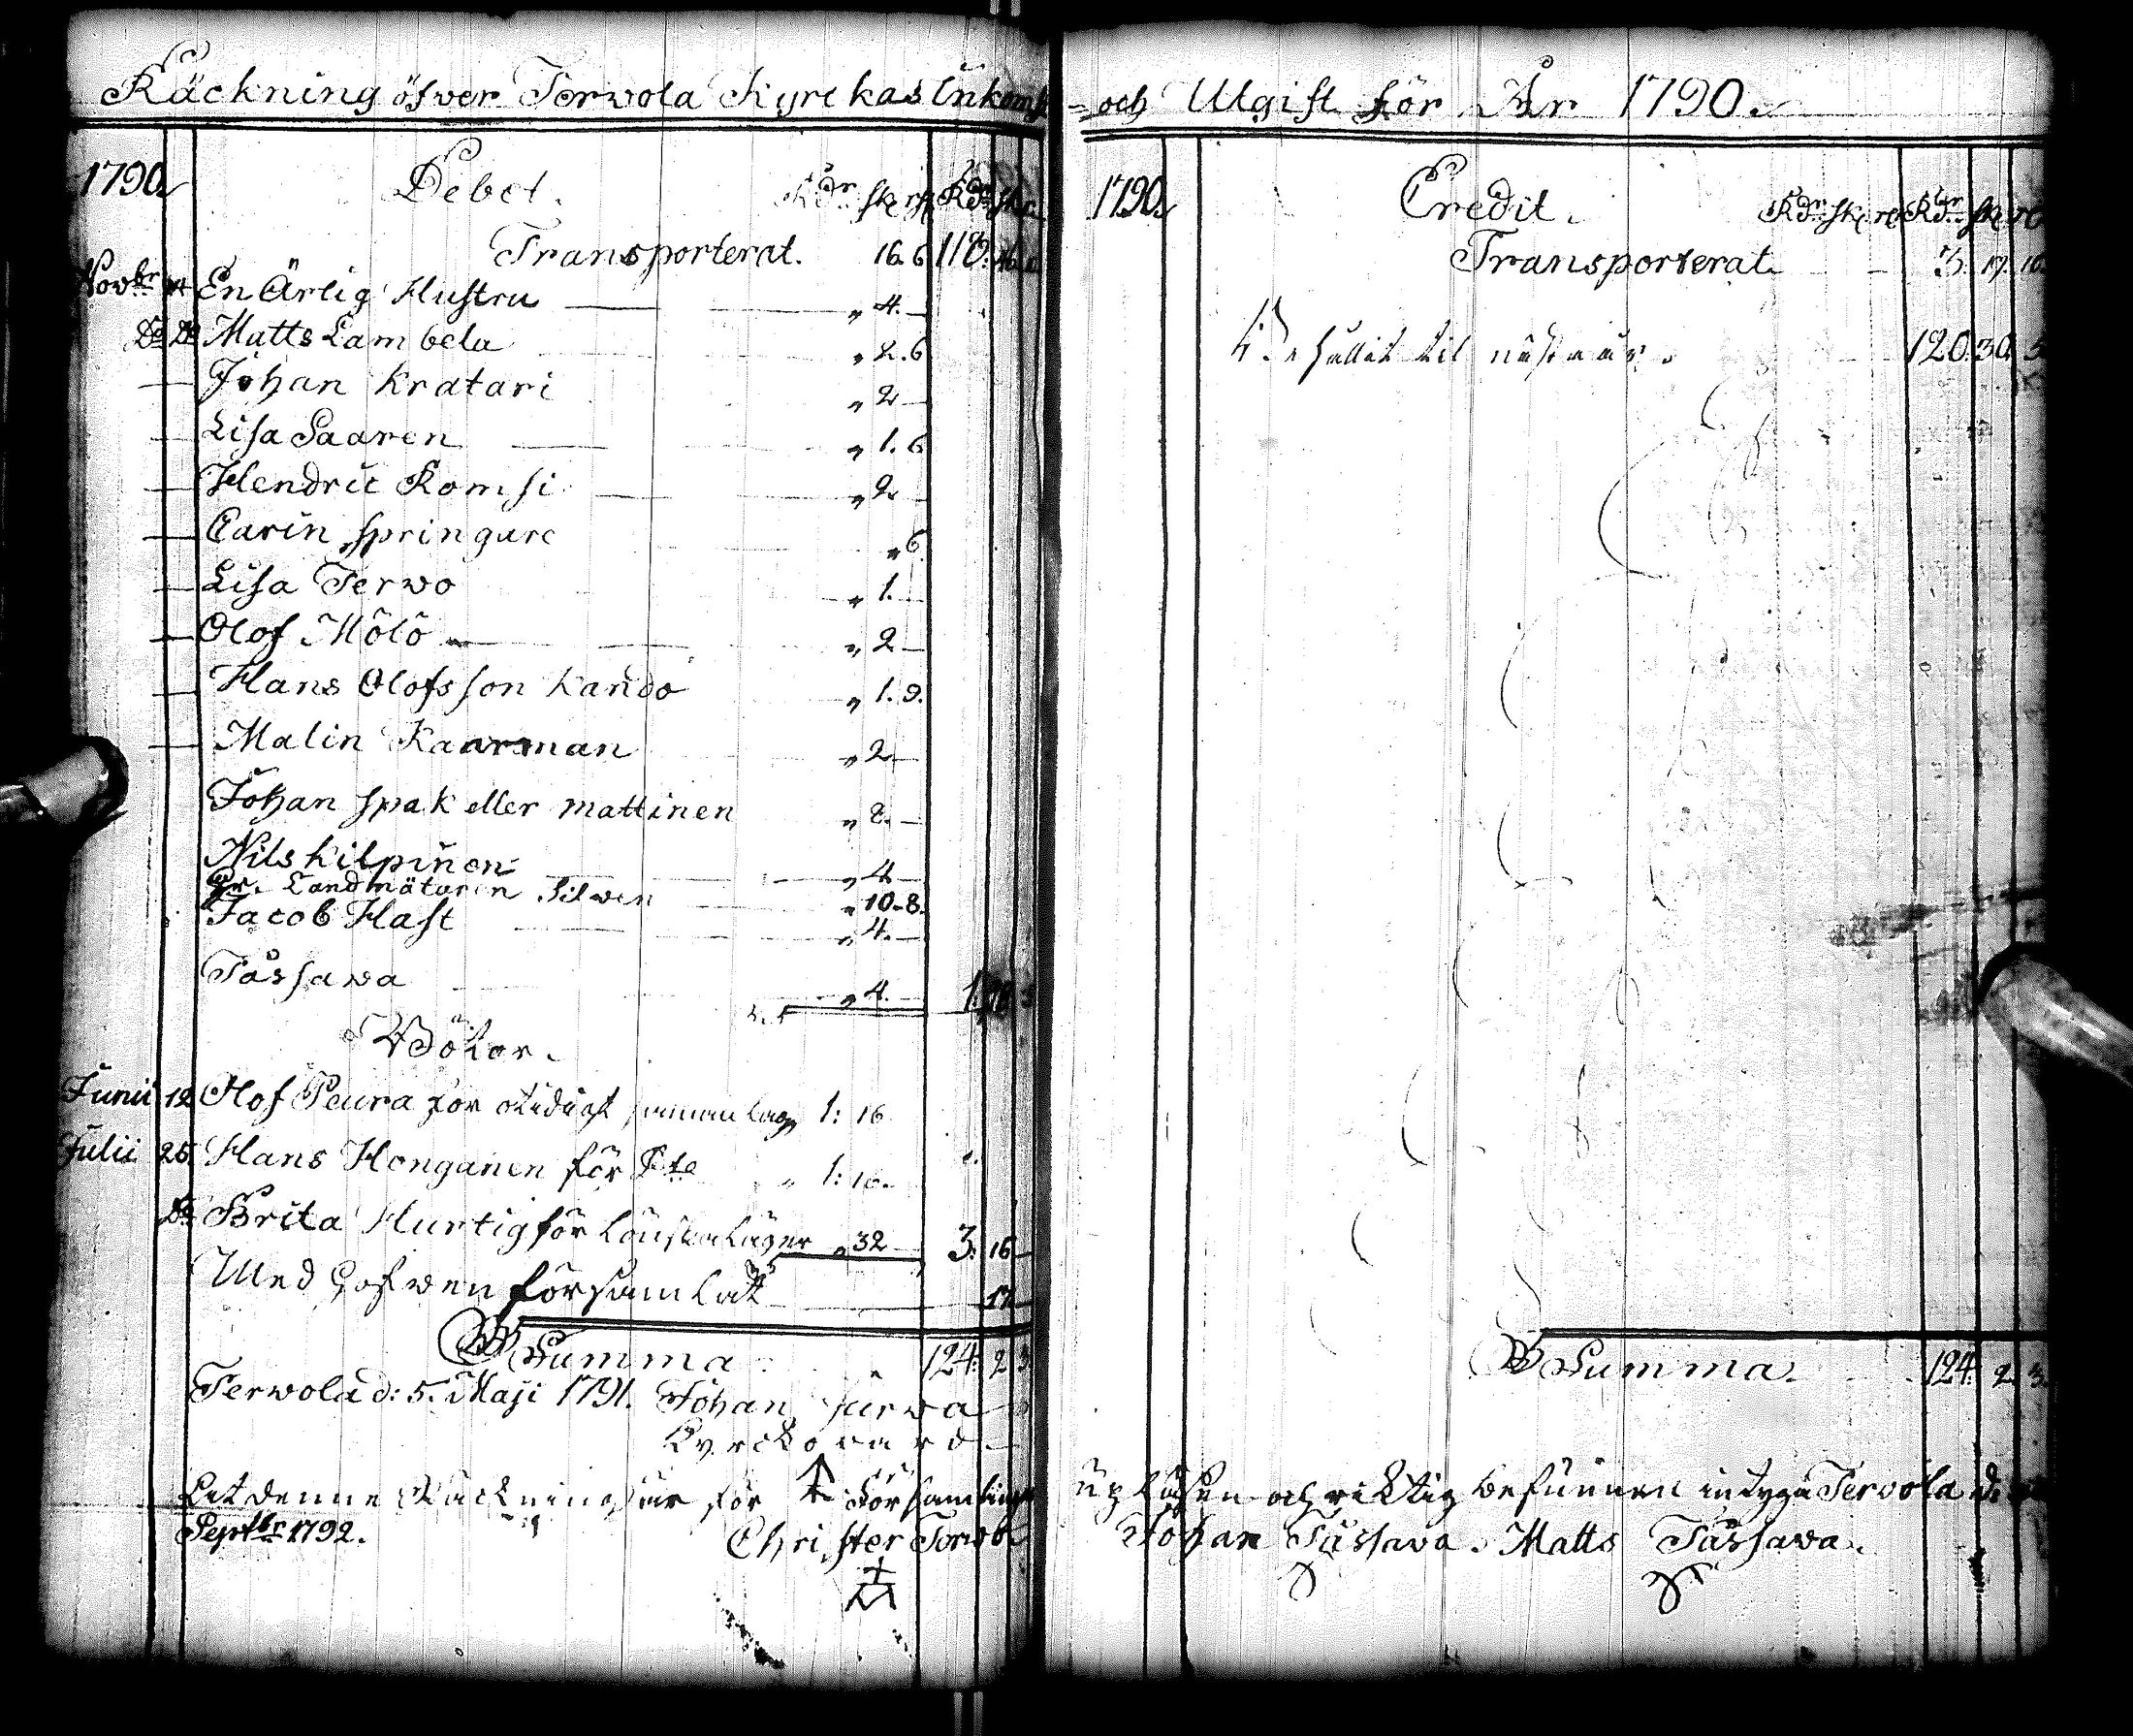 Räckning öfwer Terwola Kyrckas Inkomst
1790.
Debet. Rdr sk rst Rdr sk r
Transporterat. 16. 6 118:
Novbr En Ärlig Hustru " 4. —
Do Do Matts Lambela " 2. 6
— Johan Kratari " 2 —
— Lisa Saaren " 1. 6
— Hendric Romsi " 2 —
— Carin Springare " 6
— Lisa Terwo " 1. —
— Olof Mölö " 2 —
— Hans Olofsson Kando " 1. 9.
— Malin Kaarman " 2 —
Johan Spak eller Mattinen " 2. —
Nils Kilpinen " 4 —
Hr. Landmätaren Silwen " 10. 8.
Jacob Hast " 4. —
Tåssawa " 4. — 1.
Böter.
Junii 12 Olof Peura för otidigt 1: 16
Julii 25. Hans Honganen för Dto 1: 16.
Do Brita Hurtig för Lönskaläger " 32 3: 16 —
Med Hofwen församlat 17 —
Summa 124. 2 3
Terwola d: 5. Maji 1791. Johan Jurwa
Kyrckovard
At denne Räckning är för Församlingen
Septbr 1792. Christer Terwo
och Utgift för År 1790.
1790.
Credit. Rdr sk rst Rdr sk rst
Transporterat 3. 17. 10.
Behållit til nästa år. 120. 30. 5
Summa. 124. 2. 3.
upläsen och riktig befunnen intyga Tervola d:
Johan Tåssava. Matts Tåssawa.